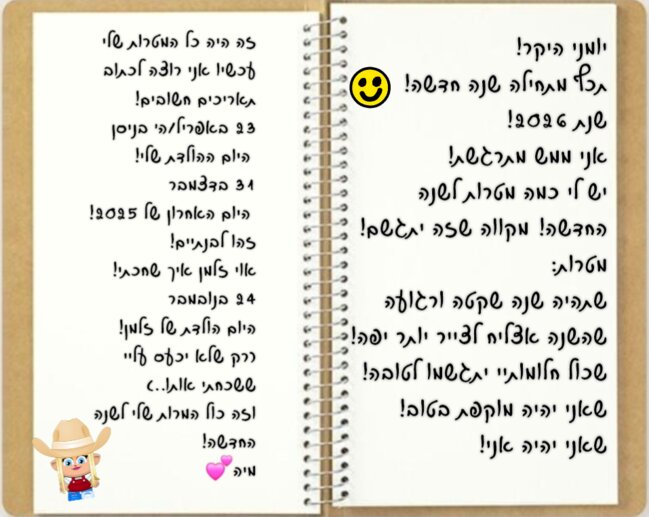 יומני היקר!
תכף מתחילה שנה חדשה!
שנת 2026!
אני ממש מתרגשת!
יש לי כמה מטרות לשנה
החדשה! מקווה שזה יתגשם!
מטרות:
שתהיה שנה שקטה ורגועה
שהשנה אצליח לצייר יותר יפה!
שכול חלומותיי יתגשמו לטובה!
שאני יהיה מוקפת בטוב!
שאני יהיה אני!
זה היה כל המטרות שלי
עכשיו אני רוצה לכתוב
תאריכים חשובים!
23 באפריל/הי בניסן
היום ההולדת שלי!
31 בדצמבר
היום האחרון של 2025!
זהו לבנתיים!
אוי זלמן איך שחכתי!
24 בנובמבר
היום הולדת של זלמן!
ררק שלא יכעס עליי
ששכחתי אותו..>
וזה כול המרות שלי לשנה
החדשה!
מיה